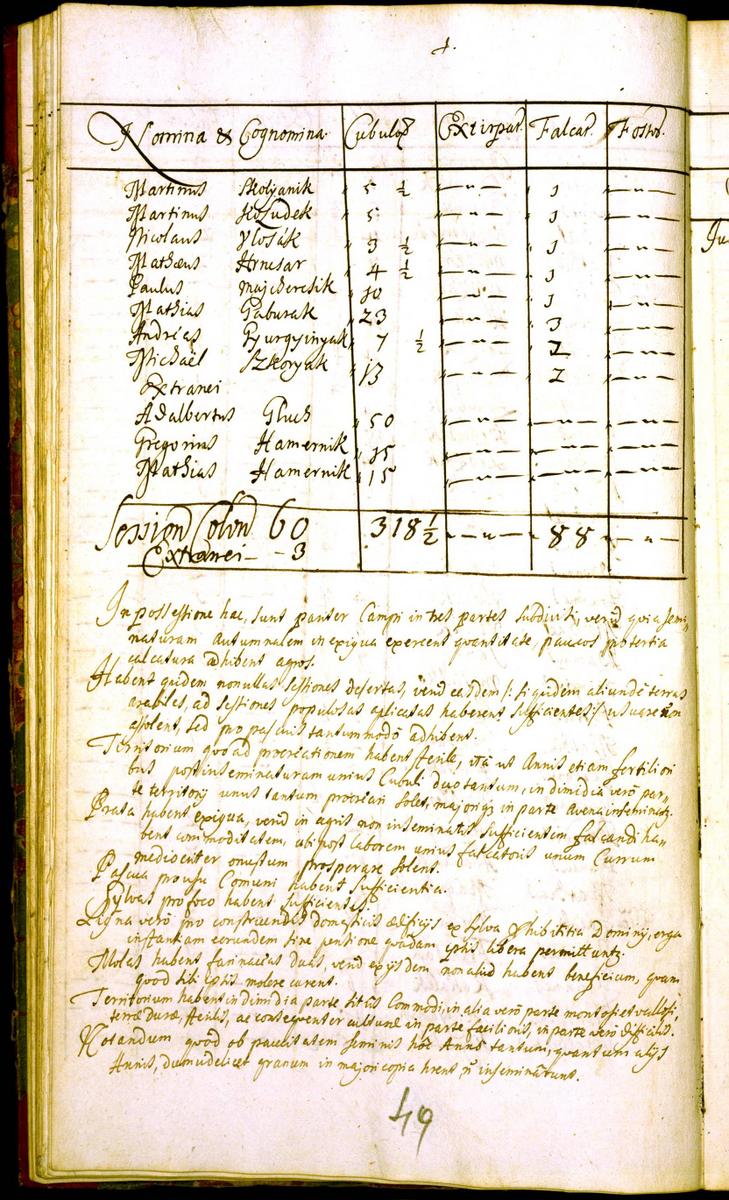 4.
Nomina & Cognomina. Cubuloꝝ Extirpat. Falcat. Fossor.
Martinus Skolyanik 5 ½ —"— 1 —"—
Martinus 5 —"— 1 —"—
Nicolaus Vlosák 3 ½ —"— 1 —"—
Mathæus Hrnesar 4 ½ —"— 1 —"—
Paulus Majcheresik 10 —"— 1 —"—
Mathias Gaburak 23 —"— 3 —"—
Andreas Gyurgyinyak 7 ½ —"— 2 —"—
Michaël Szkoryak 13 —"— 2 —"—
Extranei
Adalbertus Gluch 50 —"— —"— —"—
Gregorius Hamernik 15 —"— —"— —"—
Mathias Hamernik 15 —"— —"— —"—
Session Colon 60 318 ½ —"— 88 —"—
Extranei — 3
In possessione hac, sunt pariter Campi in tres partes subdivisi, verũ quia semi„
naturam autumnalem in exigua exercent quantitate, paucos pro tertia
calcatura adhibent agros.
Habent quidem nonnullas sessiones desertas, verũ easdem /: siquidem aliunde terras
arabiles, ad sessiones populosas aplicatas haberent sufficientes :/ usuare non
assolent, sed pro pascuis tantummodo adhibent.
Territorium quoad procreationem habent sterile, ita ut Annis etiam fertiliori
bus post inseminaturam unius Cubuli duo tantum, in dimidia verò par„
te territorij unus tantum procreari solet, majori in parte avena inseminat.
Prata habent exigua, verũ in agris non inseminatis sufficientem falcandi ha„
bent commoditatem, ubi post laborem unius falcatoris unum Currum
mediocriter onustum prosperare solent.
Pascua pro usu Comuni habent sufficientia.
Sylvas pro foco habent sufficientes.
Ligna verò pro construendis domesticis ædificijs ex sylva Dominij, erga
instantiam eorundem sine pensione quadam ipsis libera permittuntꝝ.
Molas habent farinaceas duas, verũ ex ijsdem non aliud habent beneficium, quam
quod sibi ipsis molere curent.
Territorium habent in dimidia parte sitũs Commodi, in alia verò parte montosi et vallosi,
terræ duræ, sterilis, ac consequenter culturæ in parte facilioris, in parte verò difficilis.
Notandum quod ob paucitatem seminis hôc Annô tantum, quantum alijs
Annis, dum videlicet granum in majori copia hrent, ñ inseminârunt.
49